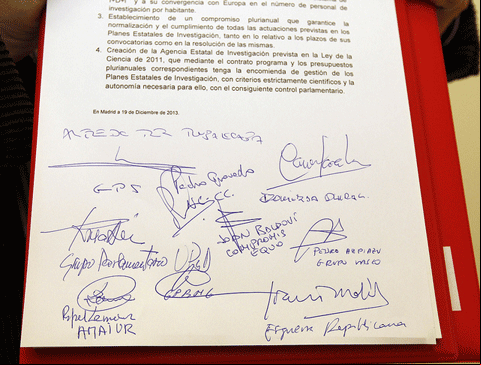 I+D+i y a su convergencia con Europa en el número de personal de
investigación por habitante.
3. Establecimiento de un compromiso plurianual que garantice la
normalización y el cumplimiento de todas las actuaciones previstas en los
Planes Estatales de Investigación, tanto en lo relativo a los plazos de sus
convocatorias como en la resolución de las mismas.
4. Creación de la Agencia Estatal de Investigación prevista en la Ley de la
Ciencia de 2011, que mediante el contrato programa y los presupuestos
plurianuales correspondientes tenga la encomienda de gestión de los
Planes Estatales de Investigación, con criterios estrictamente científicos y la
autonomía necesaria para ello, con el consiguiente control parlamentario.
En Madrid a 19 de Diciembre de 2013.
GPS
Pedro Quevedo
JOAN BALDOVÍ
COMPROMIS
EQUO
PEDRO AZPIAZU
GRUPO VASCO
Grupo Parlamentario UPyD
AMAIUR
Esquerra Republicana